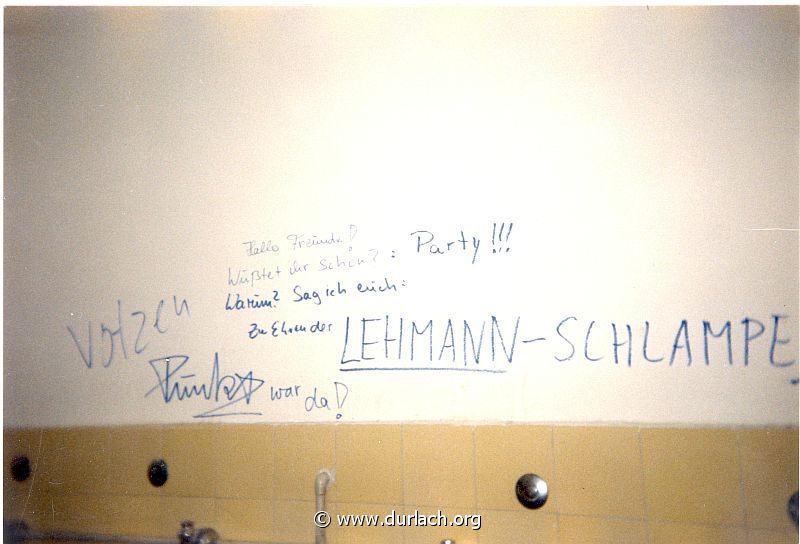 Hallo Freunde!
Wüßtet ihr schon? : Party!!!
Warum? Sag ich euch:
Zu Ehren der LEHMANN-SCHLAMPE
Votzen
Punk war da!
© www.durlach.org